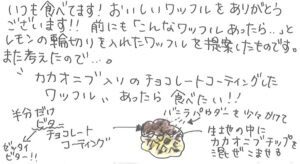 いつも食べてます! おいしいワッフルをありがとう
ございます!! 前にも「こんなワッフルあったら…」と
レモンの輪切りを入れたワッフルを提案したものです。
また考えたので…。
"カカオニブ入りのチョコレートコーティングした
ワッフル" あったら 食べたい!!
半分だけ
ビター
チョコレート
コーティング
ゼッタイ
ビター!!
バニラパウダーを少々かけて
生地の中に
カカオニブチップを
混ぜこませる